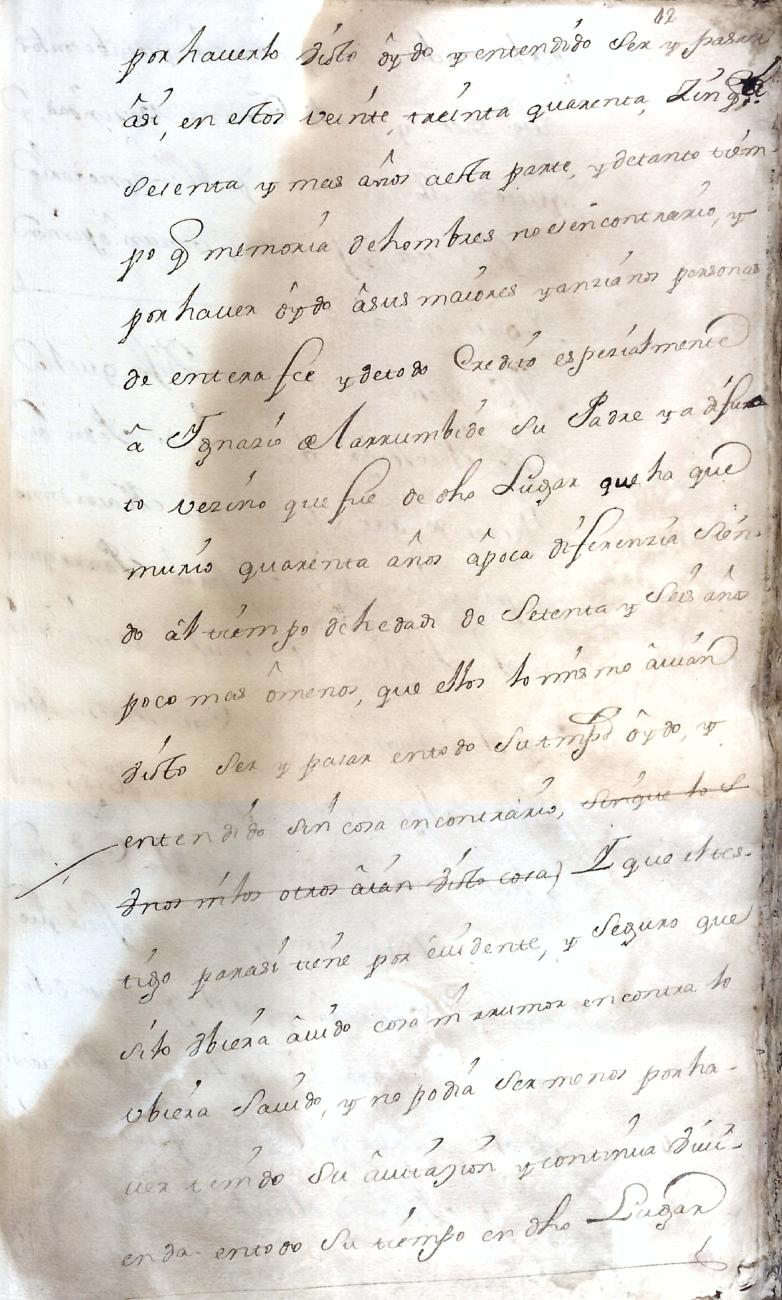 42
por haverlo visto oydo y entendido ser y pasar
âsi, en estos veinte, treinta quarenta, Zinqta
sesenta y mas años aesta parte, y detanto tiem-
po q memoria dehombres noes encontrario, y
por haver ôydo âsus maiores yanzianos personas
de entera fee y detodo Credito espezialmente
â Ygnazio de Larrumbide su Padre ya difun
to vezino que fue de dho Lugar que ha que
murio quarenta años âpoca diferenzia sien-
do âl tiempo dehedad de Setenta y Seis años
poco mas ômenos, que ellos lo mismo âvian
visto ser y pasar entodo su tmpo ôydo, y
entendido sin cosa encontrario, sinque los
vnos nilos otros âian visto cosa) Y que eltes-
tigo parasi tiene por evidente, y Seguro que
silo vbiera âvido cosa ni rrumor encontra lo
vbiera Savido, y no podia ser menos porha-
ver tenido su âvitazion y continua vivi-
enda entodo su tiempo en dho Lugar